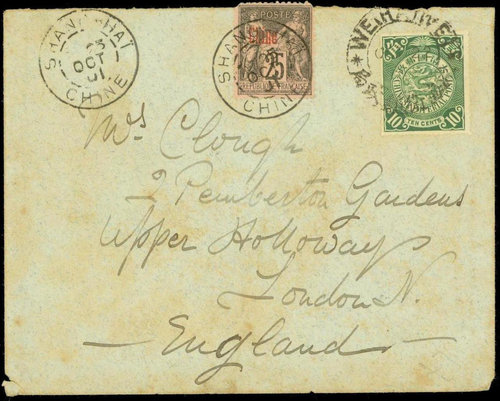 SHANG-HAI
23
OCT
01
CHINE
POSTE
Chine
25
REPUBLIQUE FRANÇAISE
SHANG-HAI
OCT
01
CHINE
WEIHAIWEI
10
TEN CENTS
10
Mrs Clough
2 Pemberton Gardens
Upper Holloway
London N.
England